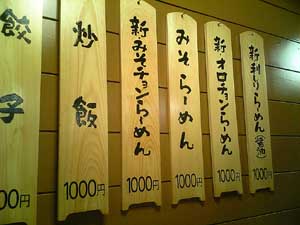 餃子
00円
炒飯
1000円
新みそチョンらーめん
1000円
みそらーめん
1000円
新オロチョンらーめん
1000円
新利しりらーめん
(醤油)
1000円